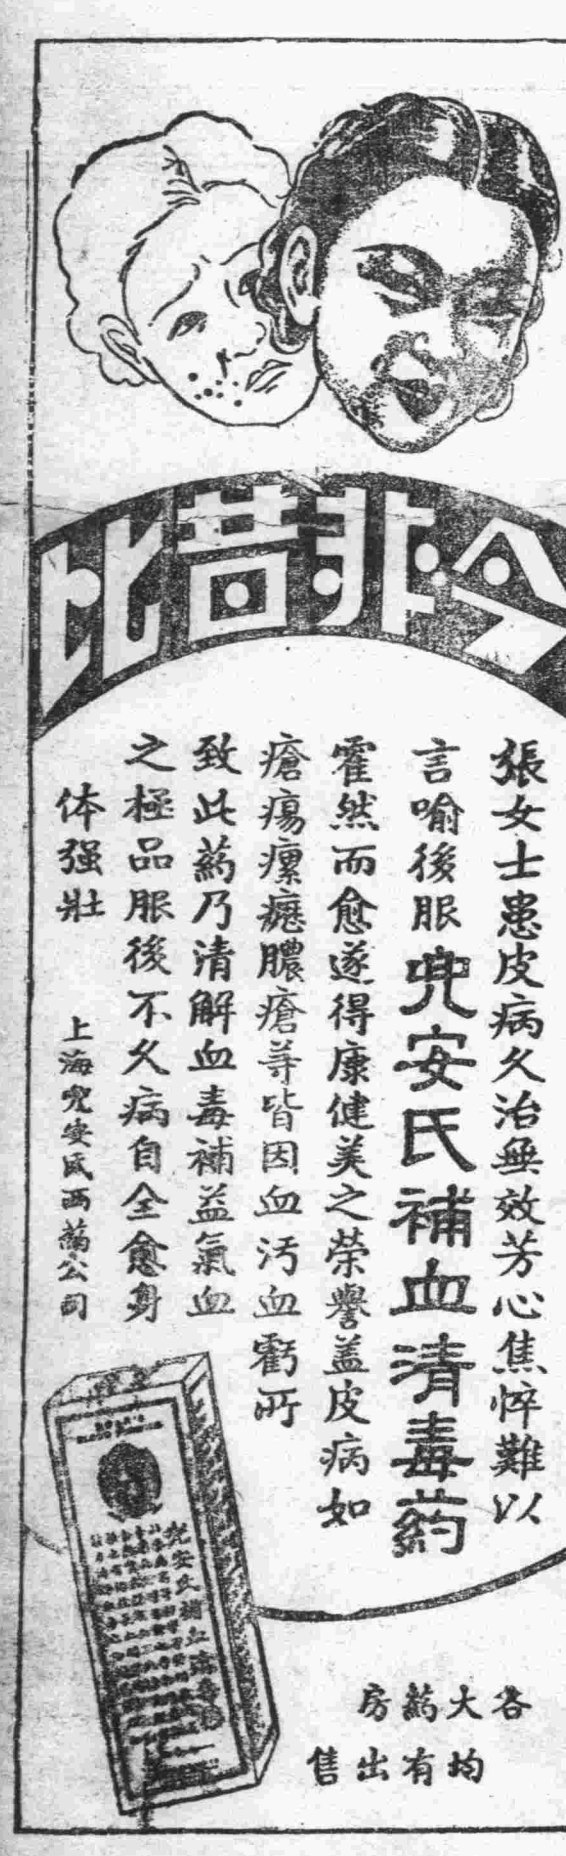 今非昔比
張女士患皮病久治無效芳心焦悴難以
言喻後服兜安氏補血清毒葯
霍然而愈遂得康健美之荣譽盖皮病如
瘡瘍瘰癧膿瘡等皆因血汚血虧所
致此葯乃清解血毒補益氣血
之極品服後不久病自全愈身
体强壯
上海兜安氏西葯公司
兜安氏補血清毒
各大葯房
均有出售